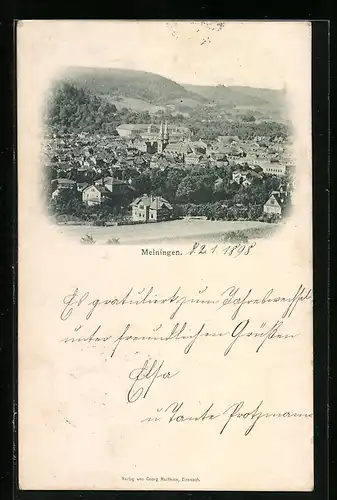 Meiningen. d 2. 1. 1898
Es gratuliert zum Jahreswechsel
unter freundlichen Grüßen
Elsa
u Tante Protzmann
Verlag von Georg Eisenach.